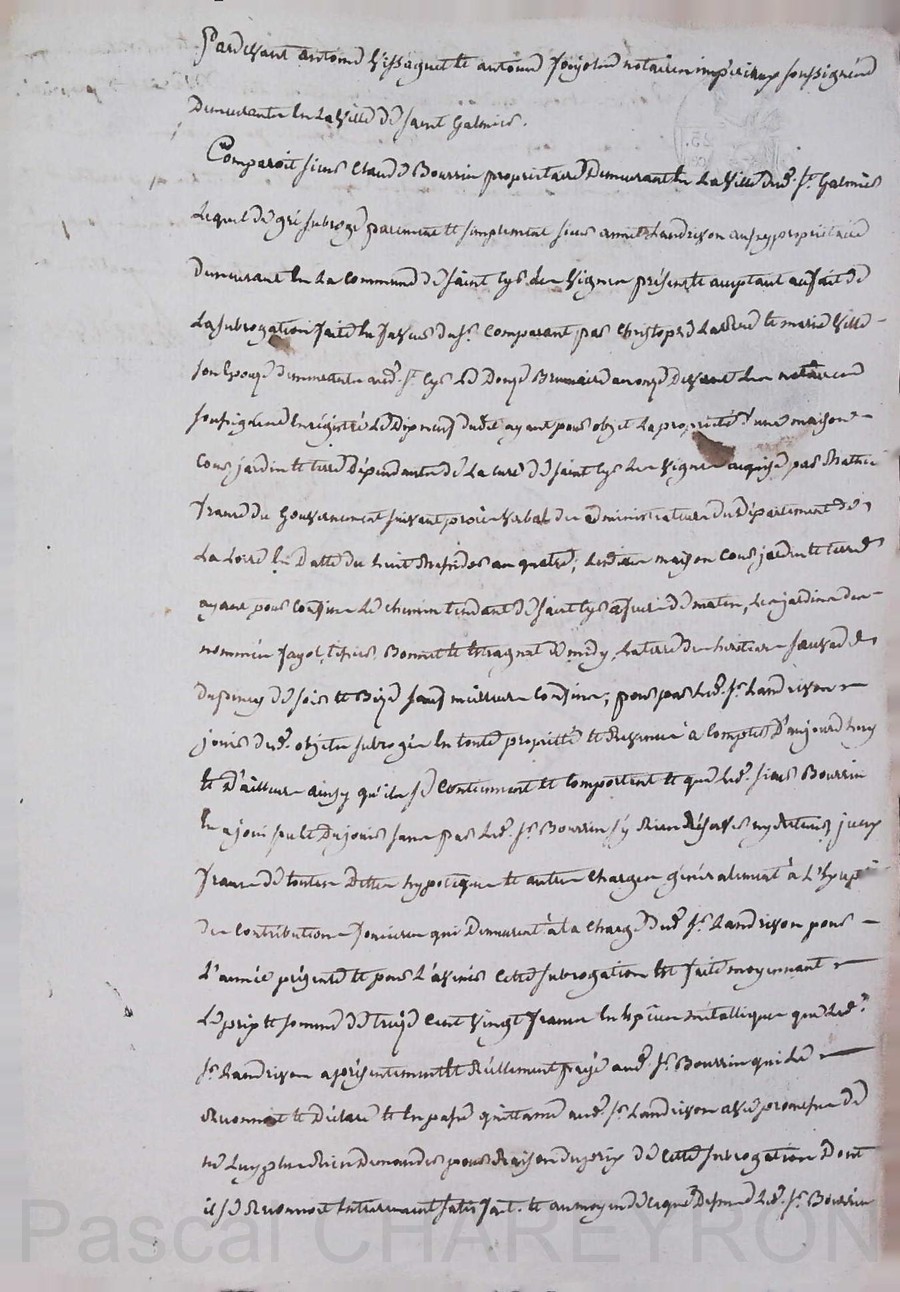 Pardevant antoine Vissaguet et antoine fonjolin notaires imperiaux soussignés
Demeurants en La Ville de saint Galmier.
Comparoit sieur Claude Bourrin proprietaire Demeurant en La Ville dud. St. Galmier
Lequel de gré subroge purement et simplement sieur annet Landrison aussy propriétaire
demeurant en La commune de saint Cyr Les Vignes présent et acceptant au fait de
La subrogation faite en faveur du sr. Comparant par Christophe et marie Ville
son Epouse demeurants aud. St. Cyr Le Douze Brumaire an onze Devant Les notaires
soussignés Enregistré Le Dix neuf dudit ayant pour objet La propriété d'une maison
Cour jardin et terre Dépendants de La cure de saint Cyr Les Vignes acquise par
du Gouvernement suivant procès verbal des administrateurs du Département de
La Loire En Datte du huit an quatre; Lesdites maison Cour jardin et terre
ayant pour confins Le chemin tendant de saint Cyr a de matin, Les jardins des
nommés fayol, Bonnet et de midy, La terre des heritiers
de soir et Bize sauf meilleurs Confins; pour par Led. sr. Landrison
jouir dud. objets subrogés En toute propriété et Revenus à Compter D'aujourd'huy
et D'ailleurs ainsy qu'ils se Contiennent et Comportent et que Led. sieur Bourrin
En a joui pu et Du jouir sans par Led. sr. Bourrin s'y Rien Réserver ny Retenir, iceux
francs de toutes Dettes hypoteques et autres Charges généralement à L'Excep
des Contributions foncieres qui Demeurent à la Charge dud. sr. Landrison pour
L'année présente et pour L'avenir Cette subrogation Est faite moyennant
Le prix et somme de treize Cent Vingt francs En Especes métalliques que Led.
sr. Landrison a présentement et Réellement payé aud. sr. Bourrin qui Le
Reconnoit et Déclare et En passe quittance aud. sr. Landrison avec promesse de
ne Luy plus Rien Demander pour Raison du prix de Cette subrogation Dont
il se Reconnoit Entierement satisfait. et au moyen de ce que Dessus Led. sr. Bourrin
Pascal CHAREYRON